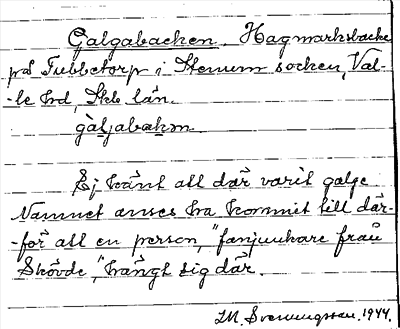 Galgabacken, Hagmarksbacke
på Tubbetorp i Stenum socken, Val-
-le hd, Skb län.
gàl̥jabakən
Ej känt att där varit galge
Namnet anses ha kommit till där-
-för att en person, "fanjunkare från
Skövde", hängt sig där.
M. Svenningsson. 1944.